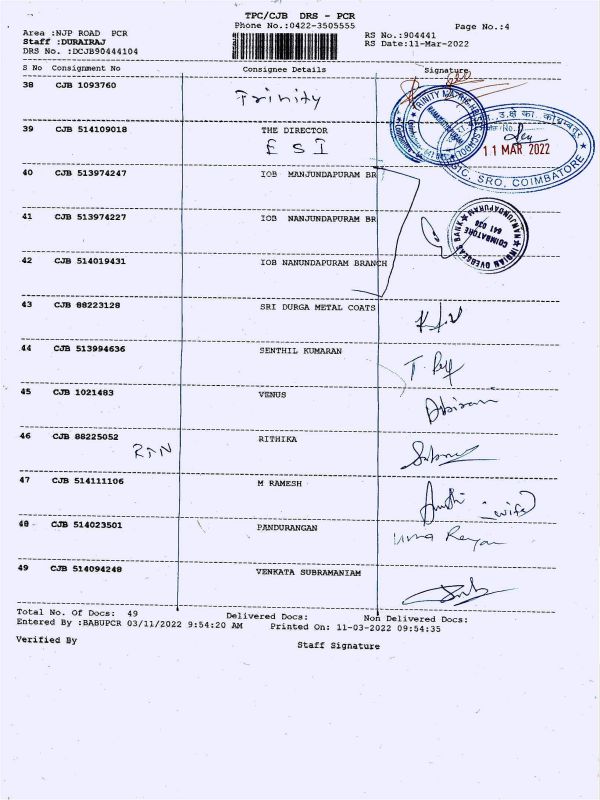 TPC/CJB DRS - PCR
Phone No.:0422-3505555 Page No.:4
Area :NJP ROAD PCR RS No.:904441
Staff :DURAIRAJ RS Date:11-Mar-2022
DRS No. :DCJB90444104
S No Consignment No Consignee Details Signature
38 CJB 1093760 Trinity
39 CJB 514109018 THE DIRECTOR
ESI
11 MAR 2022
SRO, COIMBATORE
40 CJB 513974247 IOB MANJUNDAPURAM BR
41 CJB 513974227 IOB NANJUNDAPURAM BR
INDIAN OVERSEAS BANK
NANJUNDAPURAM
COIMBATORE
641 036
42 CJB 514019431 IOB NANUNDAPURAM BRANCH
43 CJB 88223128 SRI DURGA METAL COATS
44 CJB 513994636 SENTHIL KUMARAN
45 CJB 1021483 VENUS
46 CJB 88225052 RITHIKA
RNN
47 CJB 514111106 M RAMESH
wife
48 CJB 514023501 PANDURANGAN
49 CJB 514094248 VENKATA SUBRAMANIAM
Total No. Of Docs: 49 Delivered Docs: Non Delivered Docs:
Entered By :BABUPCR 03/11/2022 9:54:20 AM Printed On: 11-03-2022 09:54:35
Verified By Staff Signature